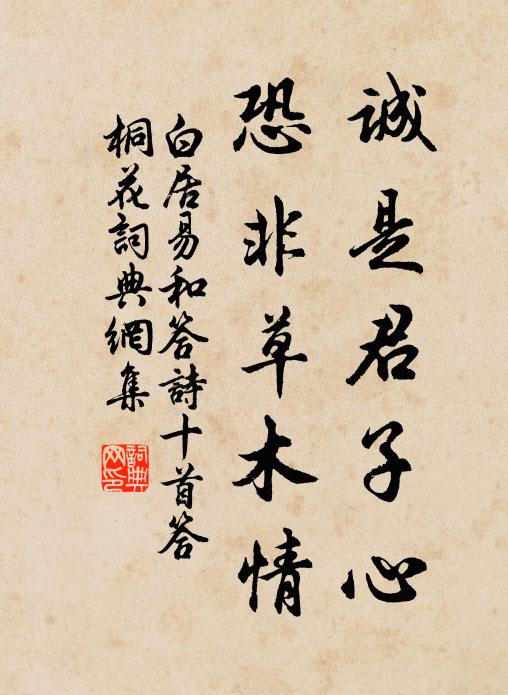 誠是君子心
恐非草木情
白居易和答詩十首答
桐花詞典網集
詞典网印